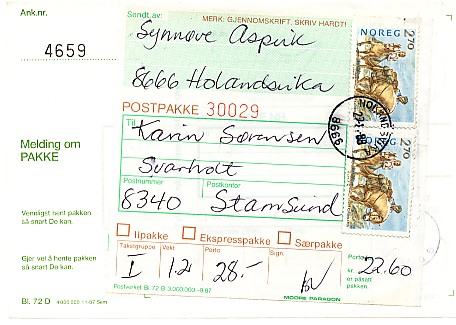 Ank.nr.
4659
Sendt av:
MERK: GJENNOMSKRIFT, SKRIV HARDT!
Synnøve Aspvik
8666 Holandsvika
POSTPAKKE 30029
Til
Karin Sørensen
Svarholt
Postnummer
Postkontor
8340 Stamsund
Ilpakke
Ekspresspakke
Særpakke
Takstgruppe
Vekt
Porto
Sign.
I
1.2
28.-
Porto
kr. 22.60
er påsatt
pakken.
Postverket Bl. 72 B 3.000.000 -9.87
MOORE PARAGON
Melding om
PAKKE
Vennligst hent pakken
så snart De kan.
Gjør vel å hente pakken
så snart De kan.
Bl. 72 D 4 000 000 11-87 Sem
NOREG 270
NOREG 270
8666